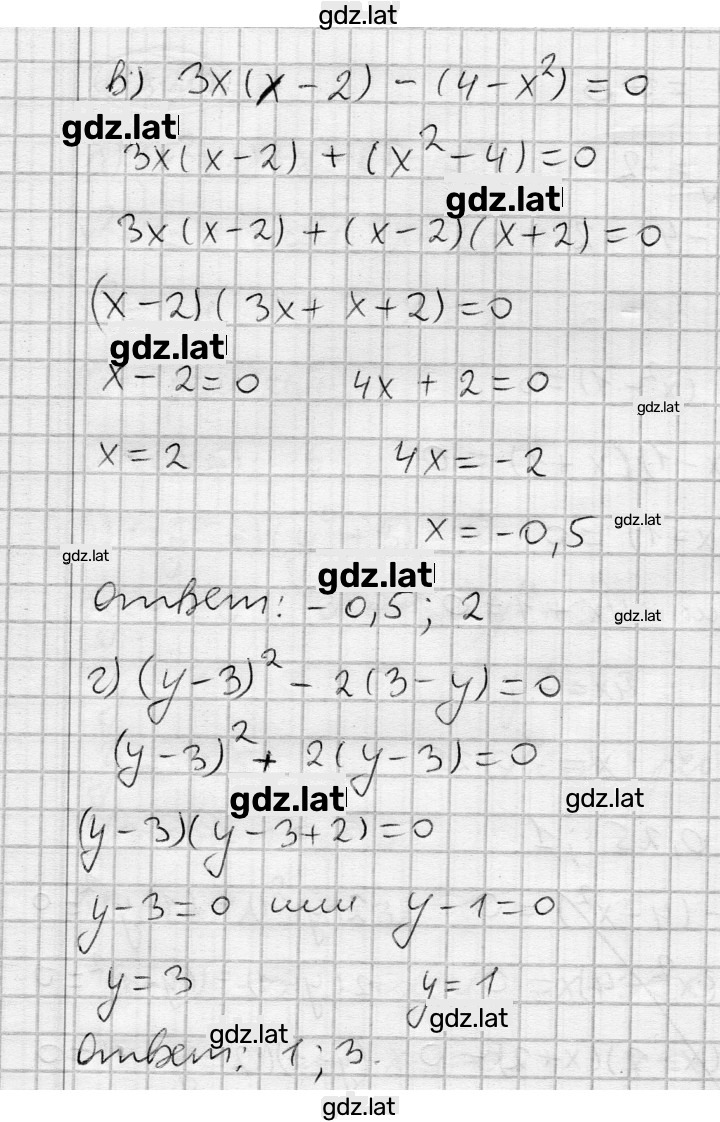 gdz.lat
в) 3x(x-2)-(4-x²)=0
gdz.lat
3x(x-2)+(x²-4)=0
gdz.lat
3x(x-2)+(x-2)(x+2)=0
(x-2)(3x+x+2)=0
gdz.lat
x-2=0 4x+2=0
gdz.lat
x=2 4x=-2
x=-0,5 gdz.lat
gdz.lat
gdz.lat
Ответ: -0,5; 2 gdz.lat
г) (y-3)²-2(3-y)=0
(y-3)²+2(y-3)=0
gdz.lat gdz.lat
(y-3)(y-3+2)=0
y-3=0 или y-1=0
y=3 y=1
gdz.lat
gdz.lat
Ответ: 1; 3.
gdz.lat